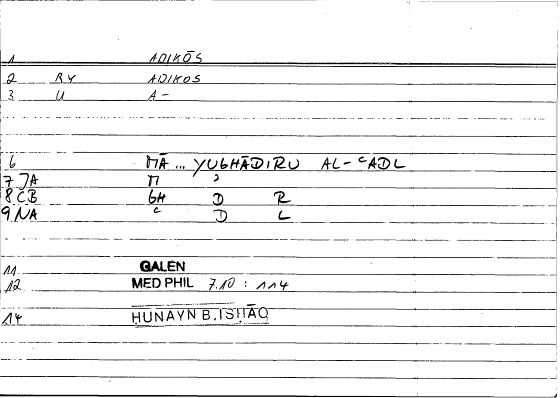 1 ADIKŌS
2 RY ADIKOS
3 U A-
6 MĀ ... YUGHĀDIRU AL-ʿADL
7 JA M ʾ
8 CB GH D R
9 NA ʿ D L
11 GALEN
12 MED PHIL 7.10 : 114
14 HUNAYN B. ISHĀQ